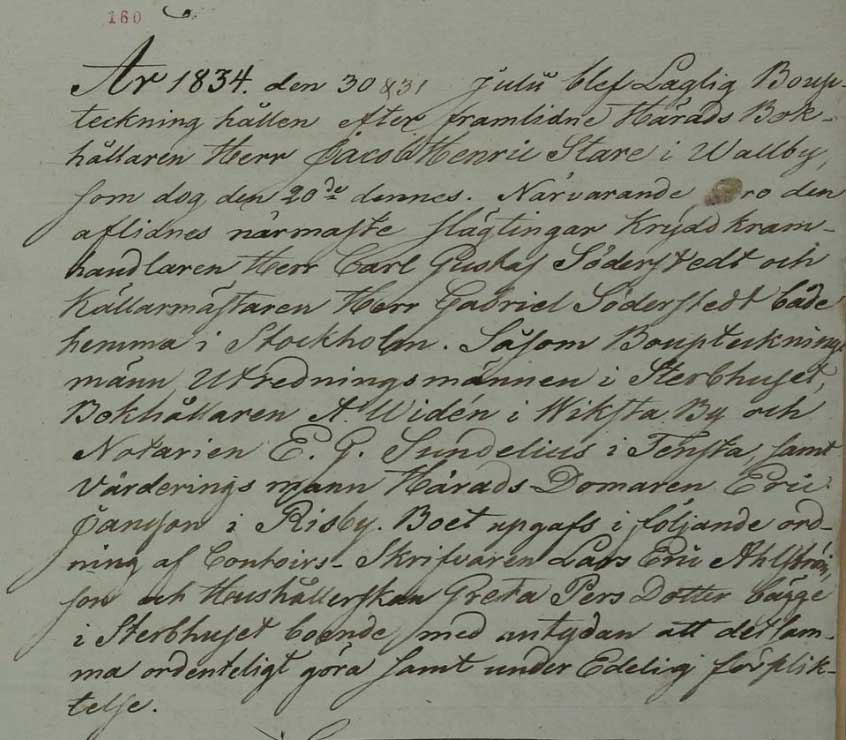 160
År 1834. den 30 & 31 Julii blef Laglig Boup-
teckning hållen efter framlidne Härads Bok-
hållaren Herr Jacob Henric Stare i Wallby,
som dog den 20de dennes. Närvarande ro den
aflidnes närmaste slägtingar Kryddkram-
handlaren Herr Carl Gustaf Söderstedt och
Källarmästaren Herr Gabriel Söderstedt både
hemma i Stockholm. Såsom Bouptecknings
männ, Utredningsmännen i Sterbhuset,
Bokhållaren A. Widén i Wiksta By och
Notarien E. G. Sundelius i Tensta, samt
Värderings mann Härads Domaren Eric
Janson i Risby. Boet upgafs i följande ord-
ning af Contoirs-Skrifvaren Lars Eric Ahlström,
son och Hushållerskan Greta Pers Dotter bägge
i Sterbhuset boende, med antydan att det sam-
ma ordenteligt göra samt under Edelig förplik-
telse.